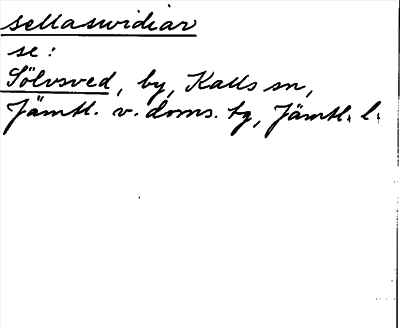 sellaswidiar
se:
Sölvsved, by, Kalls sn,
Jämtl. v. doms. tg, Jämtl. l.